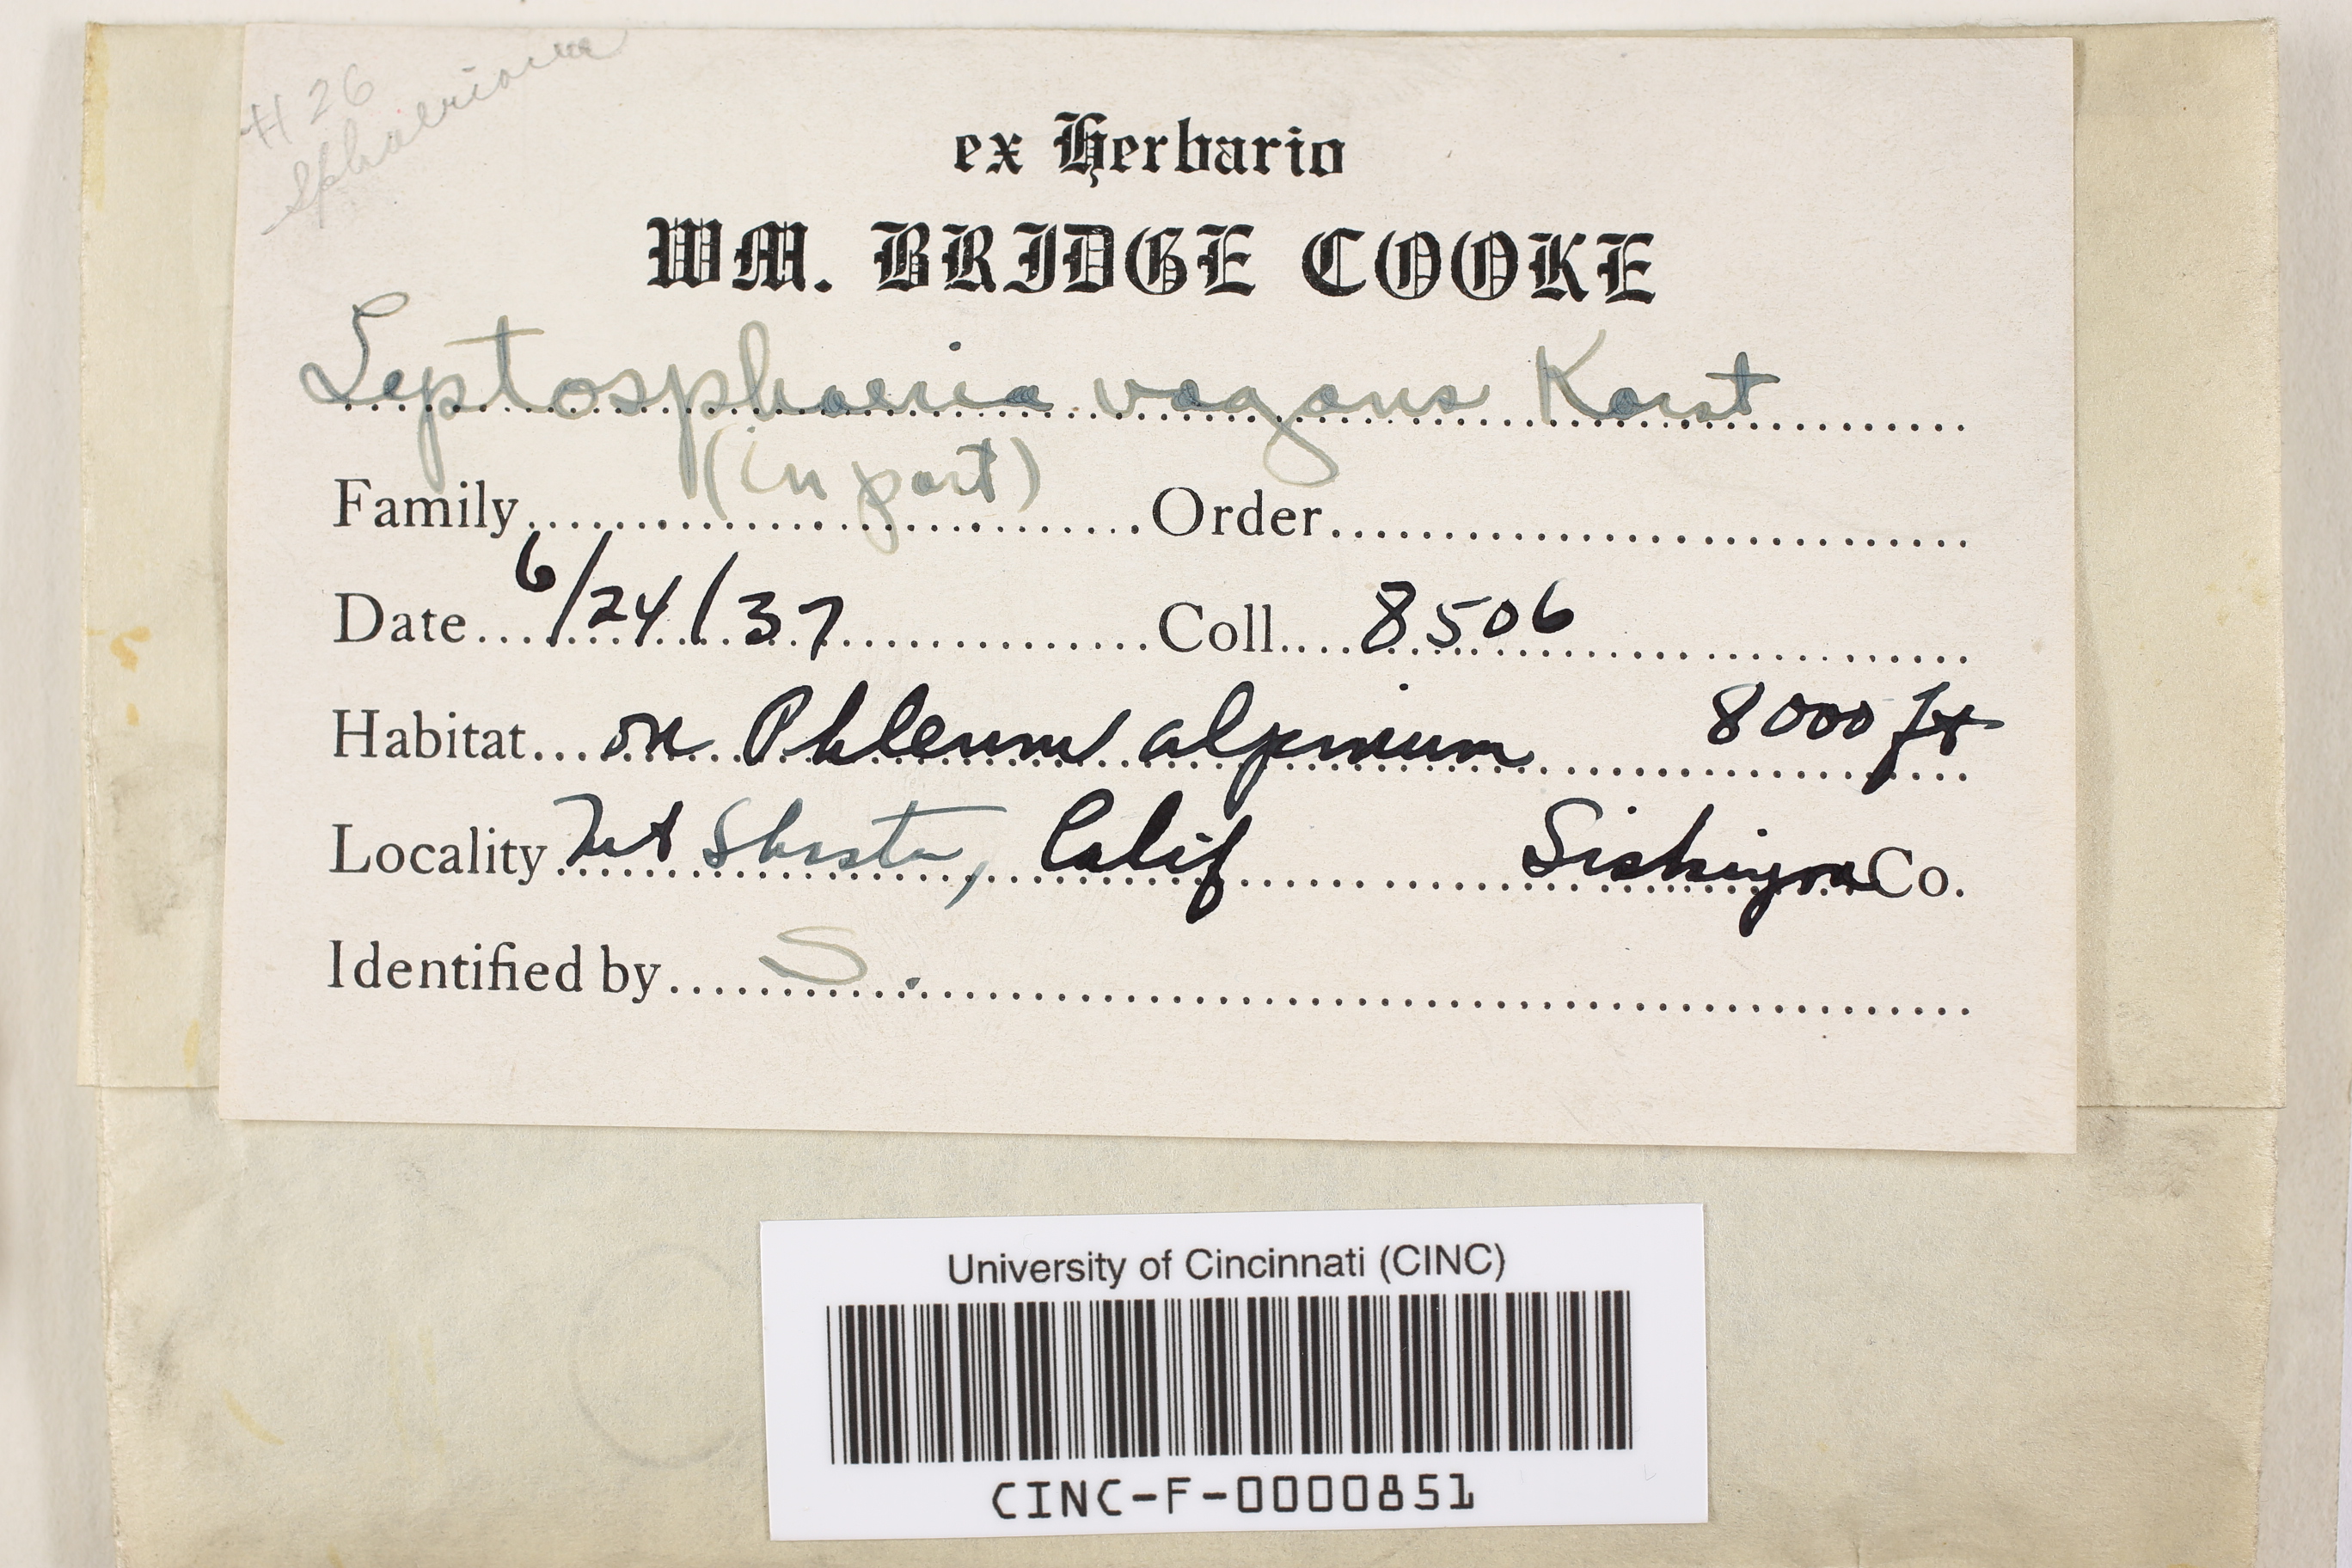 #26
ex Herbario
WM. BRIDGE COOKE
Leptosphaeria vagans Karst
(in part)
Family Order
Date 6/24/37 Coll. 8506
Habitat on Phleum alpinum 8000 ft
Locality Mt Shasta, Calif Siskiyou Co.
Identified by S.
University of Cincinnati (CINC)
CINC-F-0000851